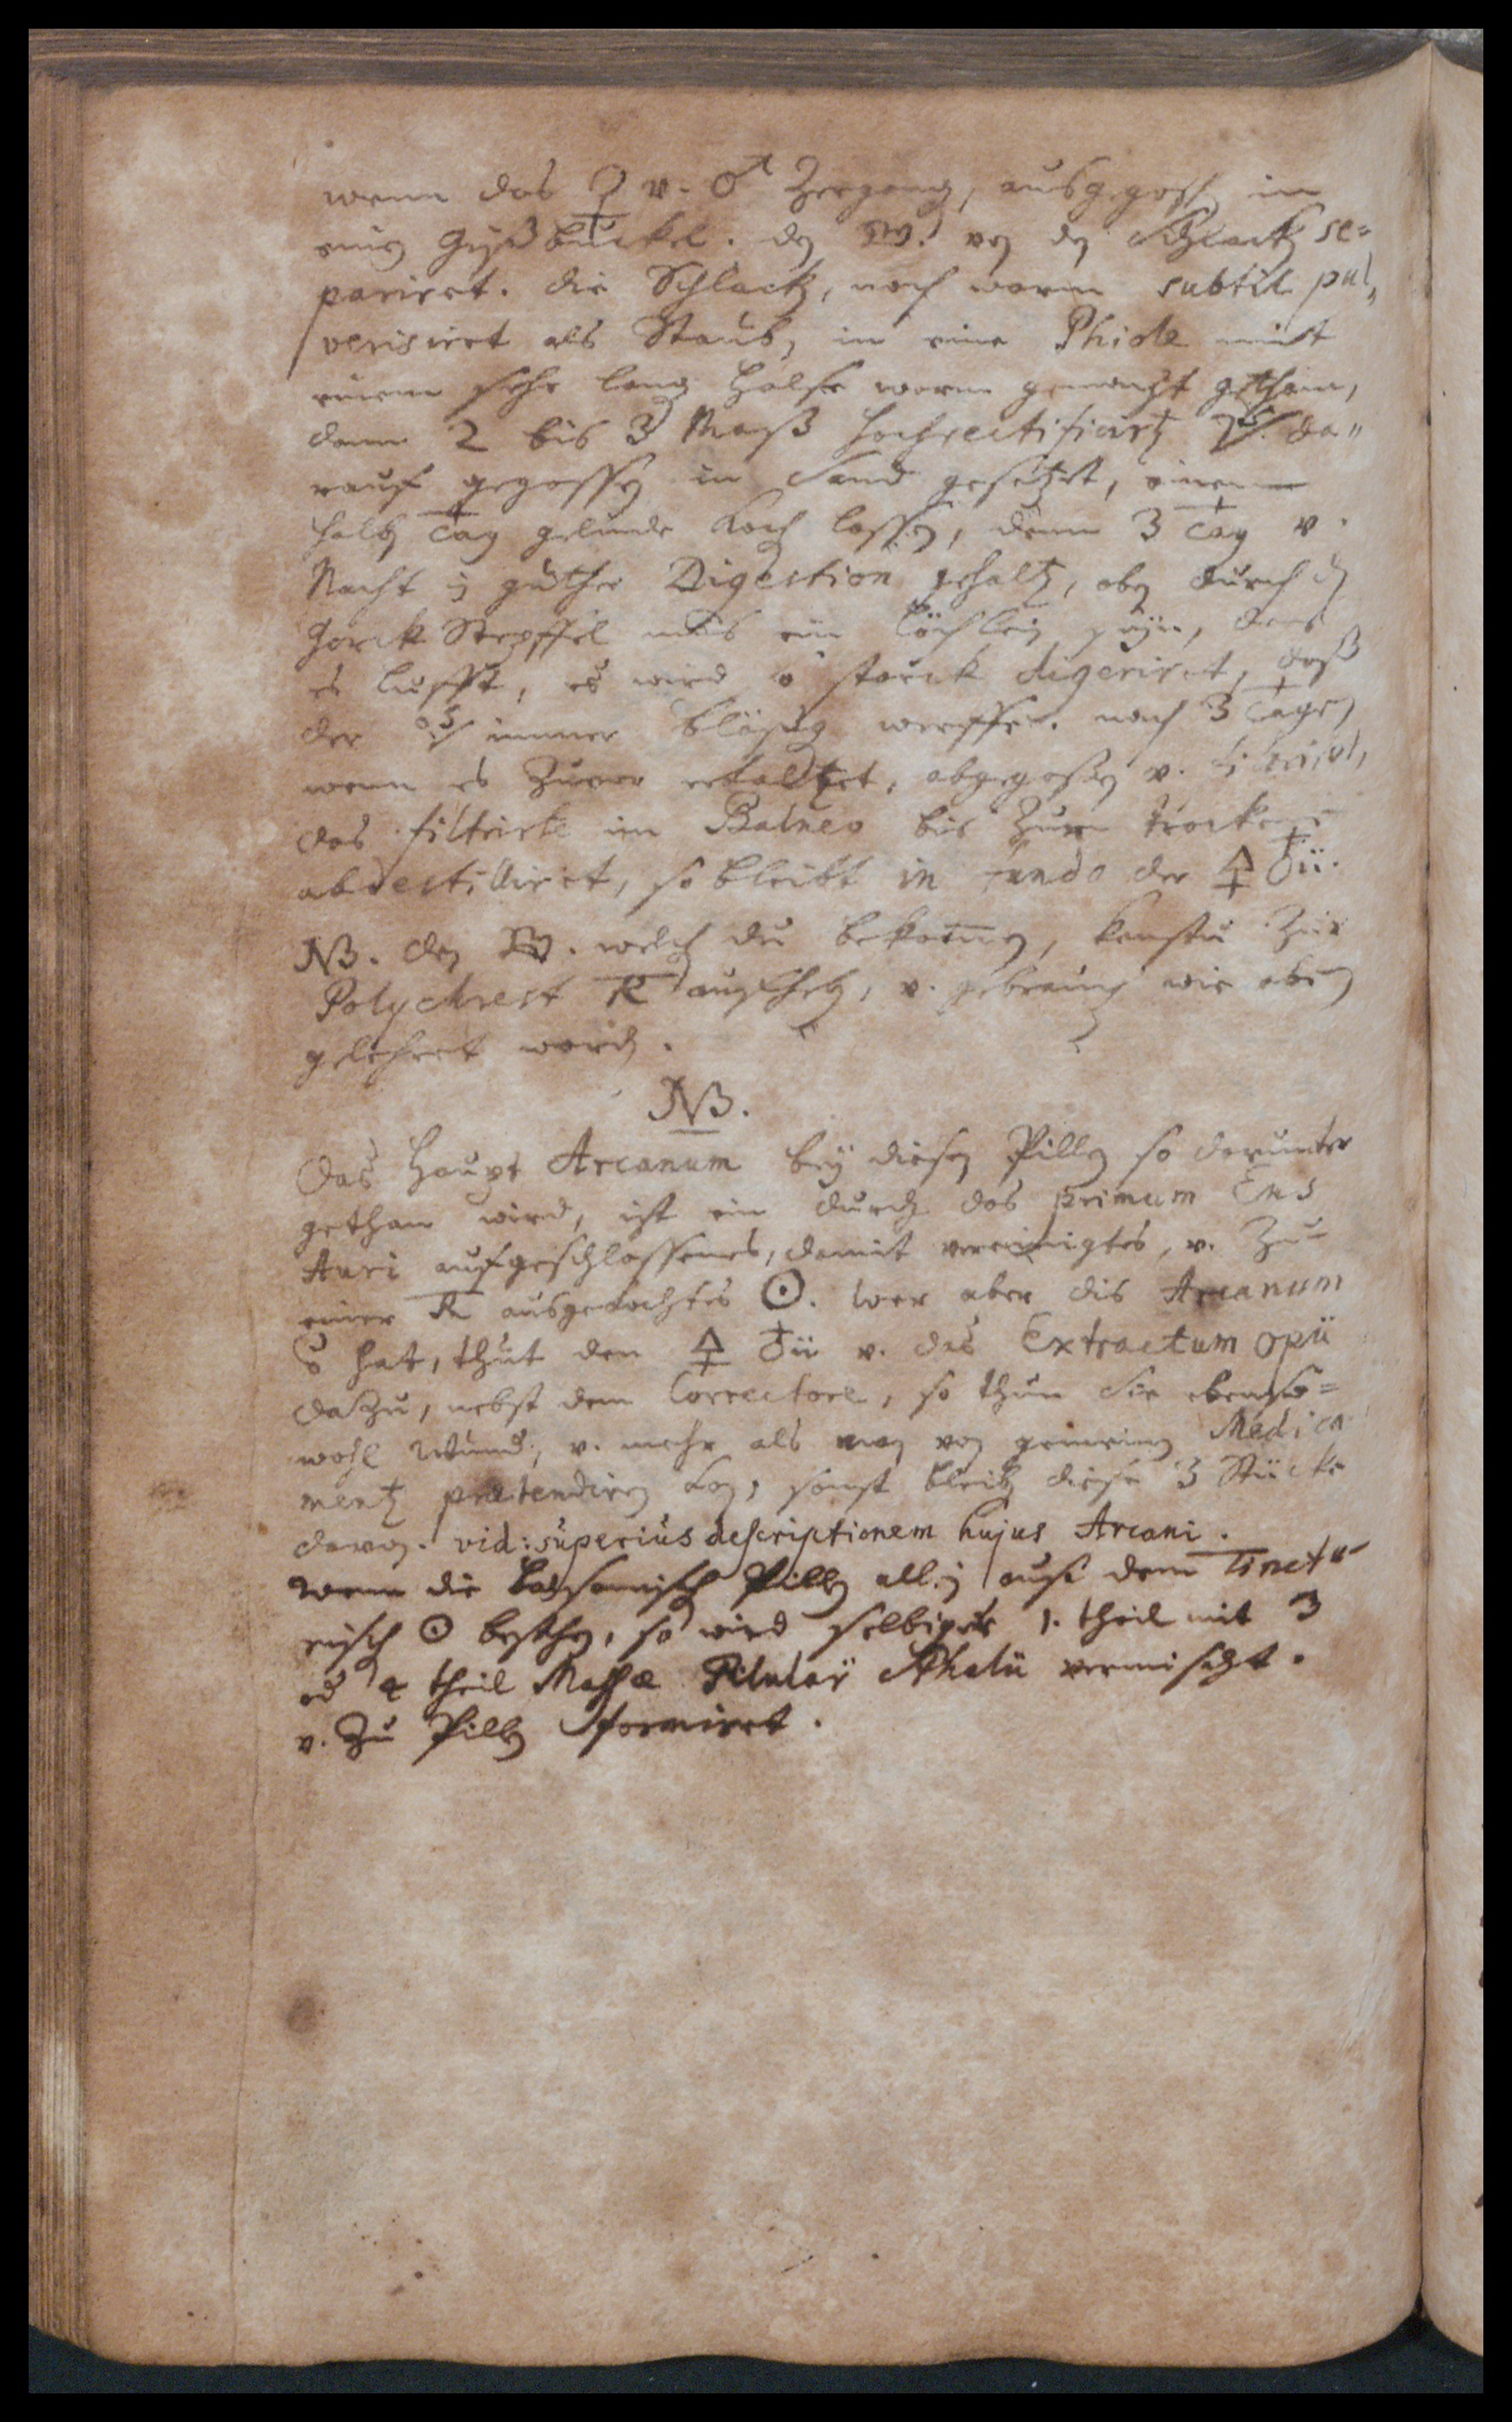 wenn das ♀ v. ♂ Zergang, ausgegoßen in
einen Gyßbuckel. den von den Schlacken se=
pariret. die Schlacken, noch warm subtil pul„
verisiret als Staub, in eine Phiole mit
einem sehr lang Halse warm gemacht gethan,
dann 2 bis 3 Maß hochrectificirten da„
rauf gegossen in Sand gesetzet, einen
halben Tag gelinde koch lassen, dann 3 Tag v.
Nacht in guther Digestion gehalten, oben durch den
Gorck Stepffel mus ein löchlein seyn, das
es lufft, es wird so starck digeriret, daß
der immer bläsig werffe. nach 3 Tagen
wenn es Zuvor erkaltet, abgegoßen v. filtriret,
das filtrirte im Balneo bis Zum trocken
abdestilliret, so bleibt in fundo der 🜍 ♁ii.
NB. den welch du bekommen, kanstu Zur
Polychrest R aufheben, v. gebrauch wie oben
gelehret word.
NB.
Das Haupt Arcanum bey diesen Pillen so darunter
gethan wird, ist ein durch das primum Ens
Auri aufgeschlossenes, damit vereinigtes, v. Zu
einer R ausgekochtes ☉. Wer aber dis Arcanum
hat, thut den 🜍 ♁ii v. das Extractum opii
daZu, nebst dem Correctore, so thun Sie ebenso=
wohl Wund., v. mehr als man von gemeinen Medica
menten prætendiren kan, sonst bleiben diese 3 Stücke
davon. vid: superius descriptionem hujus Arcani.
Wenn die balsamisch Pillen allein auß dem Tinctu
risch ☉ bestehen, so wird selbiges 1. theil mit 3
od 4 theil Massæ Pilular Sthalii vermischt.
v. Zu Pillen formiret.